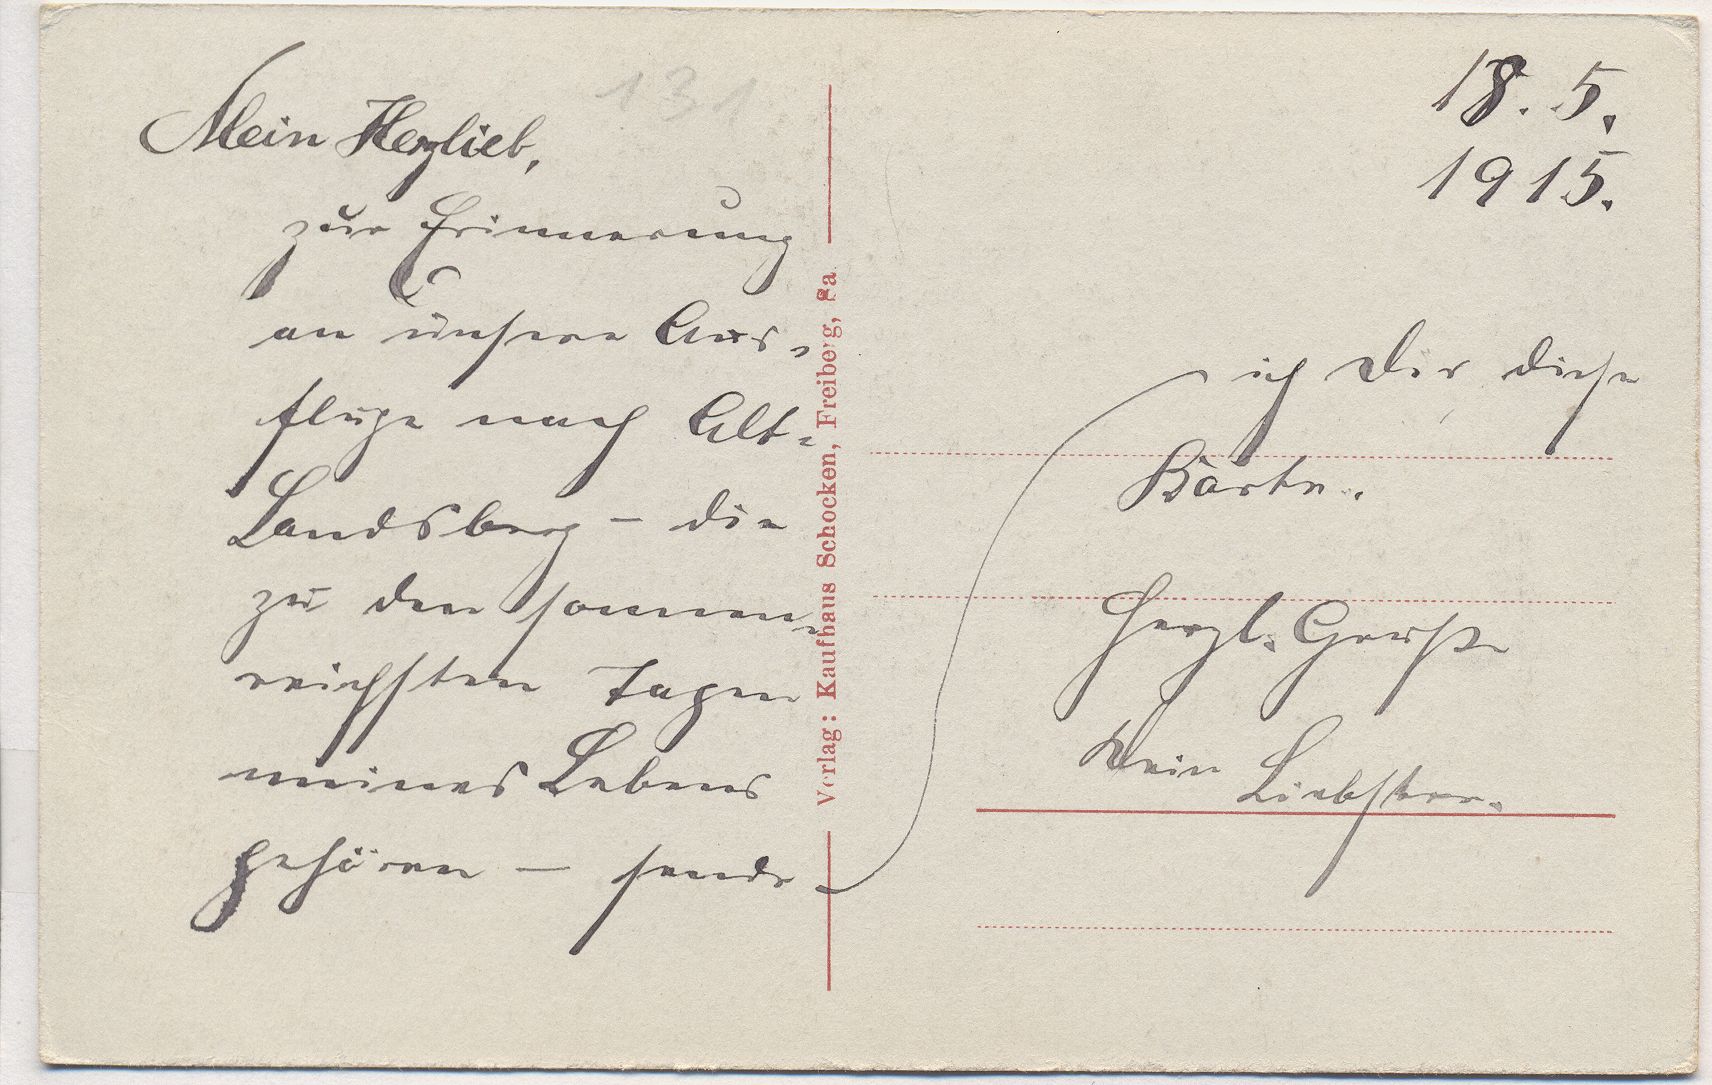 131.
18. 5.
1915.
Mein Herzlieb,
zur Erinnerung
an unsere Aus-
flüge nach Alt-
Landsberg – die
zu den sonnen-
reichsten Tagen
meines Lebens
gehören – sende
ich Dir diese
Karte.
Herzl. Grüße
Dein Liebster.
Verlag: Kaufhaus Schocken, Freiberg, Sa